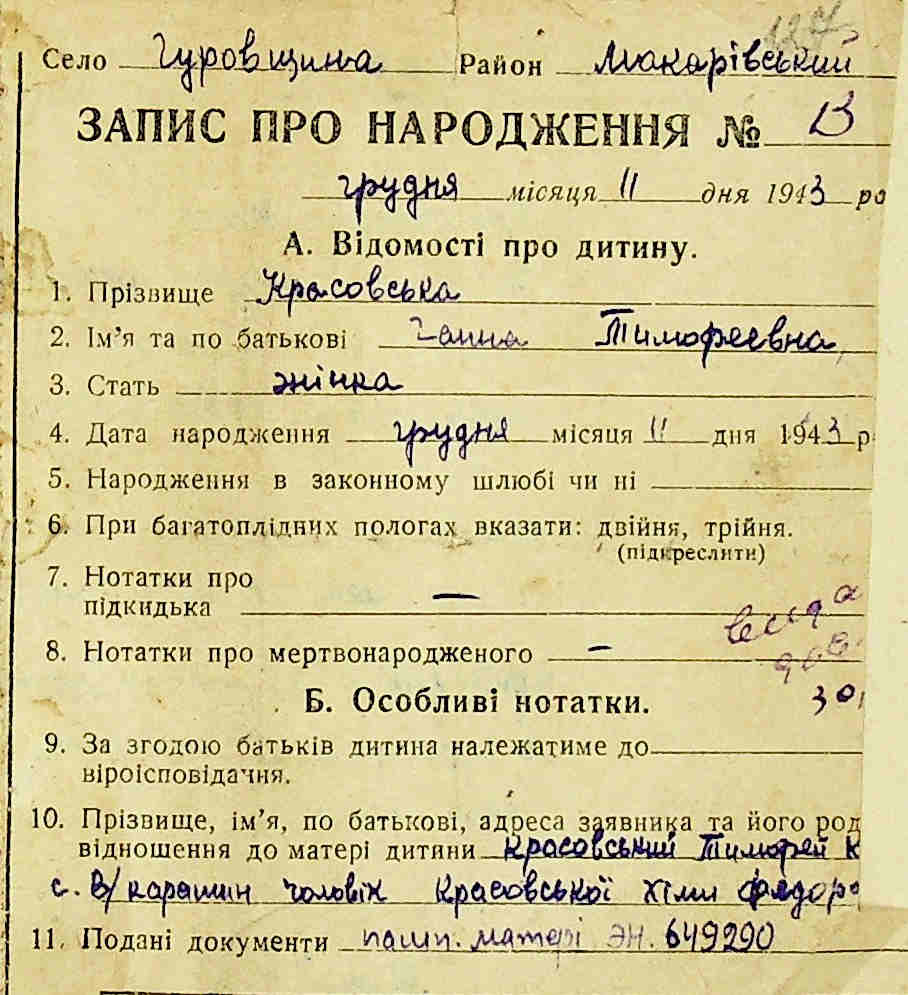 127
Село Гуровщина Район Макарівський
ЗАПИС ПРО НАРОДЖЕННЯ № 13
грудня місяця 11 дня 1943 ро
А. Відомості про дитину.
1. Прізвище Красовська
2. Ім’я та по батькові Ганна Тимофеевна
3. Стать жінка
4. Дата народження грудня місяця 11 дня 1943 р
5. Народження в законному шлюбі чи ні
6. При багатоплідних пологах вказати: двійня, трійня.
(підкреслити)
7. Нотатки про
підкидька —
8. Нотатки про мертвонародженого —
Б. Особливі нотатки.
30
9. За згодою батьків дитина належатиме до
віроісповідання.
10. Прізвище, ім’я, по батькові, адреса заявника та його род
відношення до матері дитини Красовський Тимофей К
с. В/карашин чоловік Красовської Хіми Федоро
11. Подані документи пашп. матері ЭН. 649290